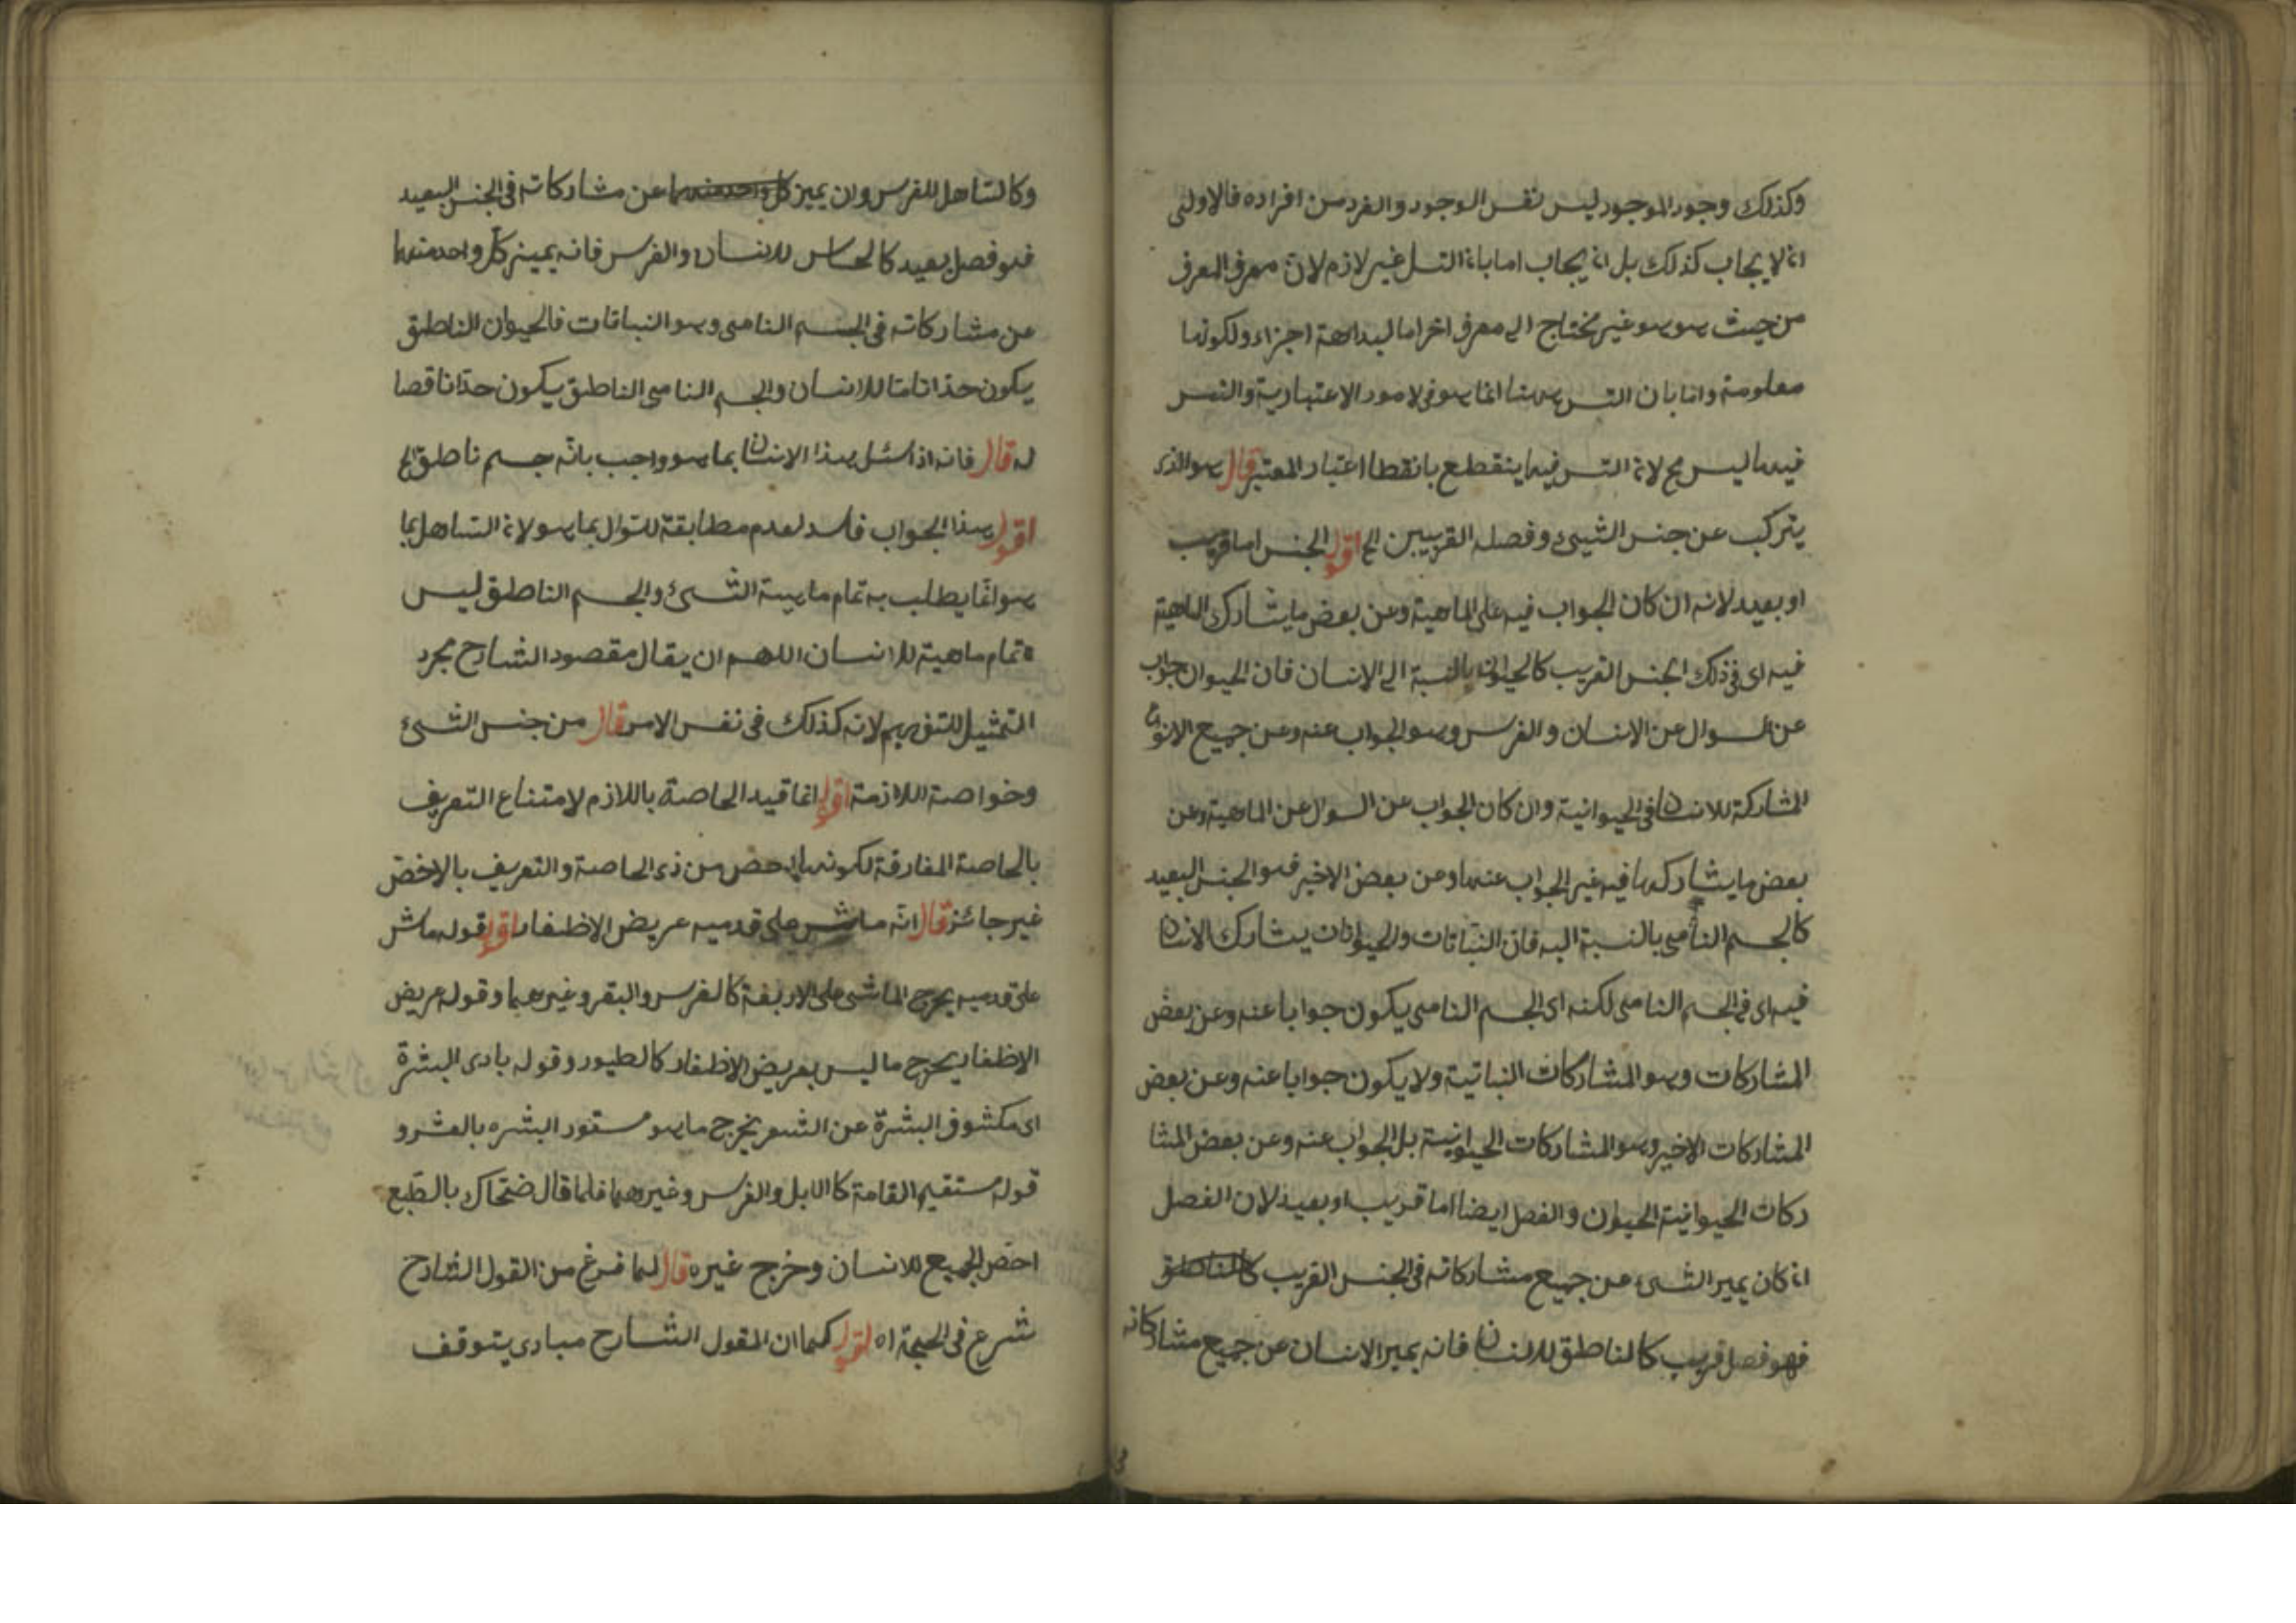 وكذلك وجود الموجود ليس نفس الوجود والفرد من افراده فالاولى
انه لا يجاب كذلك بل انه يجاب اما بانه التسل غير لازم لان معرف المعرف
من حيث هو هو غير محتاج الى معرف اخر اما لبداهة اجزاء ولكونها
معلومة واما بان التس ههنا انما هو فى لامور الاعتبارية والتس
فيها ليس مح لانه التس فيها ينقطع بانقطا اعتبار المعتبر قال هو الذى
يتركب عن جنس الشيئ وفصله القريبين الخ اقول الجنس اما قريب
او بعيد لانه ان كان الجواب فيه على الماهية وعن بعض ما يشارك الماهية
فيه اى فى ذلك الجنس القريب كالحيوان بالنسبة الى الانسان فان الحيوان جواب
عن السوال عن الانسان والفرس وهو الجواب عنه وعن جميع الانواع
المشاركة للانسان فى الحيوانية وان كان الجواب عن السول عن الماهية وعن
بعض ما يشاركها فيه غير الجواب عنها وعن بعض الاخير فهو الجنس البعيد
كالجسم النامى بالنسبة اليه فان النباتات والحيوانات يشارك الانسان
فيه اى فى الجسم النامى لكنه اى الجسم النامى يكون جوابا عنه وعن بعض
المشاركات وهو المشاركات النباتية ولا يكون جوابا عنه وعن بعض
المشاركات الاخير وهو المشاركات الحيوانية بل الجواب عنه وعن بعض المشا
ركات الحيوانية الحيوان والفصل ايضا اما قريب او بعيد لان الفصل
انه كان يميز الشىء عن جميع مشاركاته فى الجنس القريب كالناطق
فهو فصل قريب كالناطق للانسان فانه يميز الانسان عن جميع مشاركاته
وكالتساهل للفرس وان يميز كل واحد منهما عن مشاركاته فى الجنس البعيد
فهو فصل بعيد كالحساس للانسان والفرس فانه يميز كل واحد منهما
عن مشاركاته فى الجسم النامى وهو النباتات فالحيوان الناطق
يكون حدا تاما للانسان والجسم النامى الناطق يكون حدا ناقصا
له قال فانه اذا سئل هذا الانسان بما هو واجب بانه جسم ناطق الخ
اقول هذا الجواب فاسد لعدم مطابقة للسوال بما هو لانه التساهل بما
هو انما يطلب به تمام ماهية الشئ والجسم الناطق ليس
تمام ماهية للانسان اللهم ان يقال مقصود الشارح مجرد
التمثيل للتفهيم لانه كذلك فى نفس الامر قال من جنس الشئ
وخواصة اللازمة اقول انما قيد الخاصة باللازم لامتناع التعريف
بالخاصة المفارقة لكونها اخص من ذى الخاصة والتعريف بالاخص
غير جائز قال انه ماش على قدميه عريض الاظفار اقول قوله ماش
على قدميه يخرج الماشى على الاربعة كالفرس والبقر وغيرهما وقوله عريض
الاظفار يخرج ما ليس بعريض الاظفار كالطيور وقوله بادى البشرة
اى مكشوف البشرة عن الشعر يخرج ما هو مستور البشره بالشعر و
قوله مستقيم القامة كالابل والفرس وغيرهما فلما قال ضحاك بالطبع
اخص الجميع للانسان وخرج غيره قال لما فرغ من القول الشارح
شرع فى الحجة اه اقول كما ان القول الشارح مبادى يتوقف